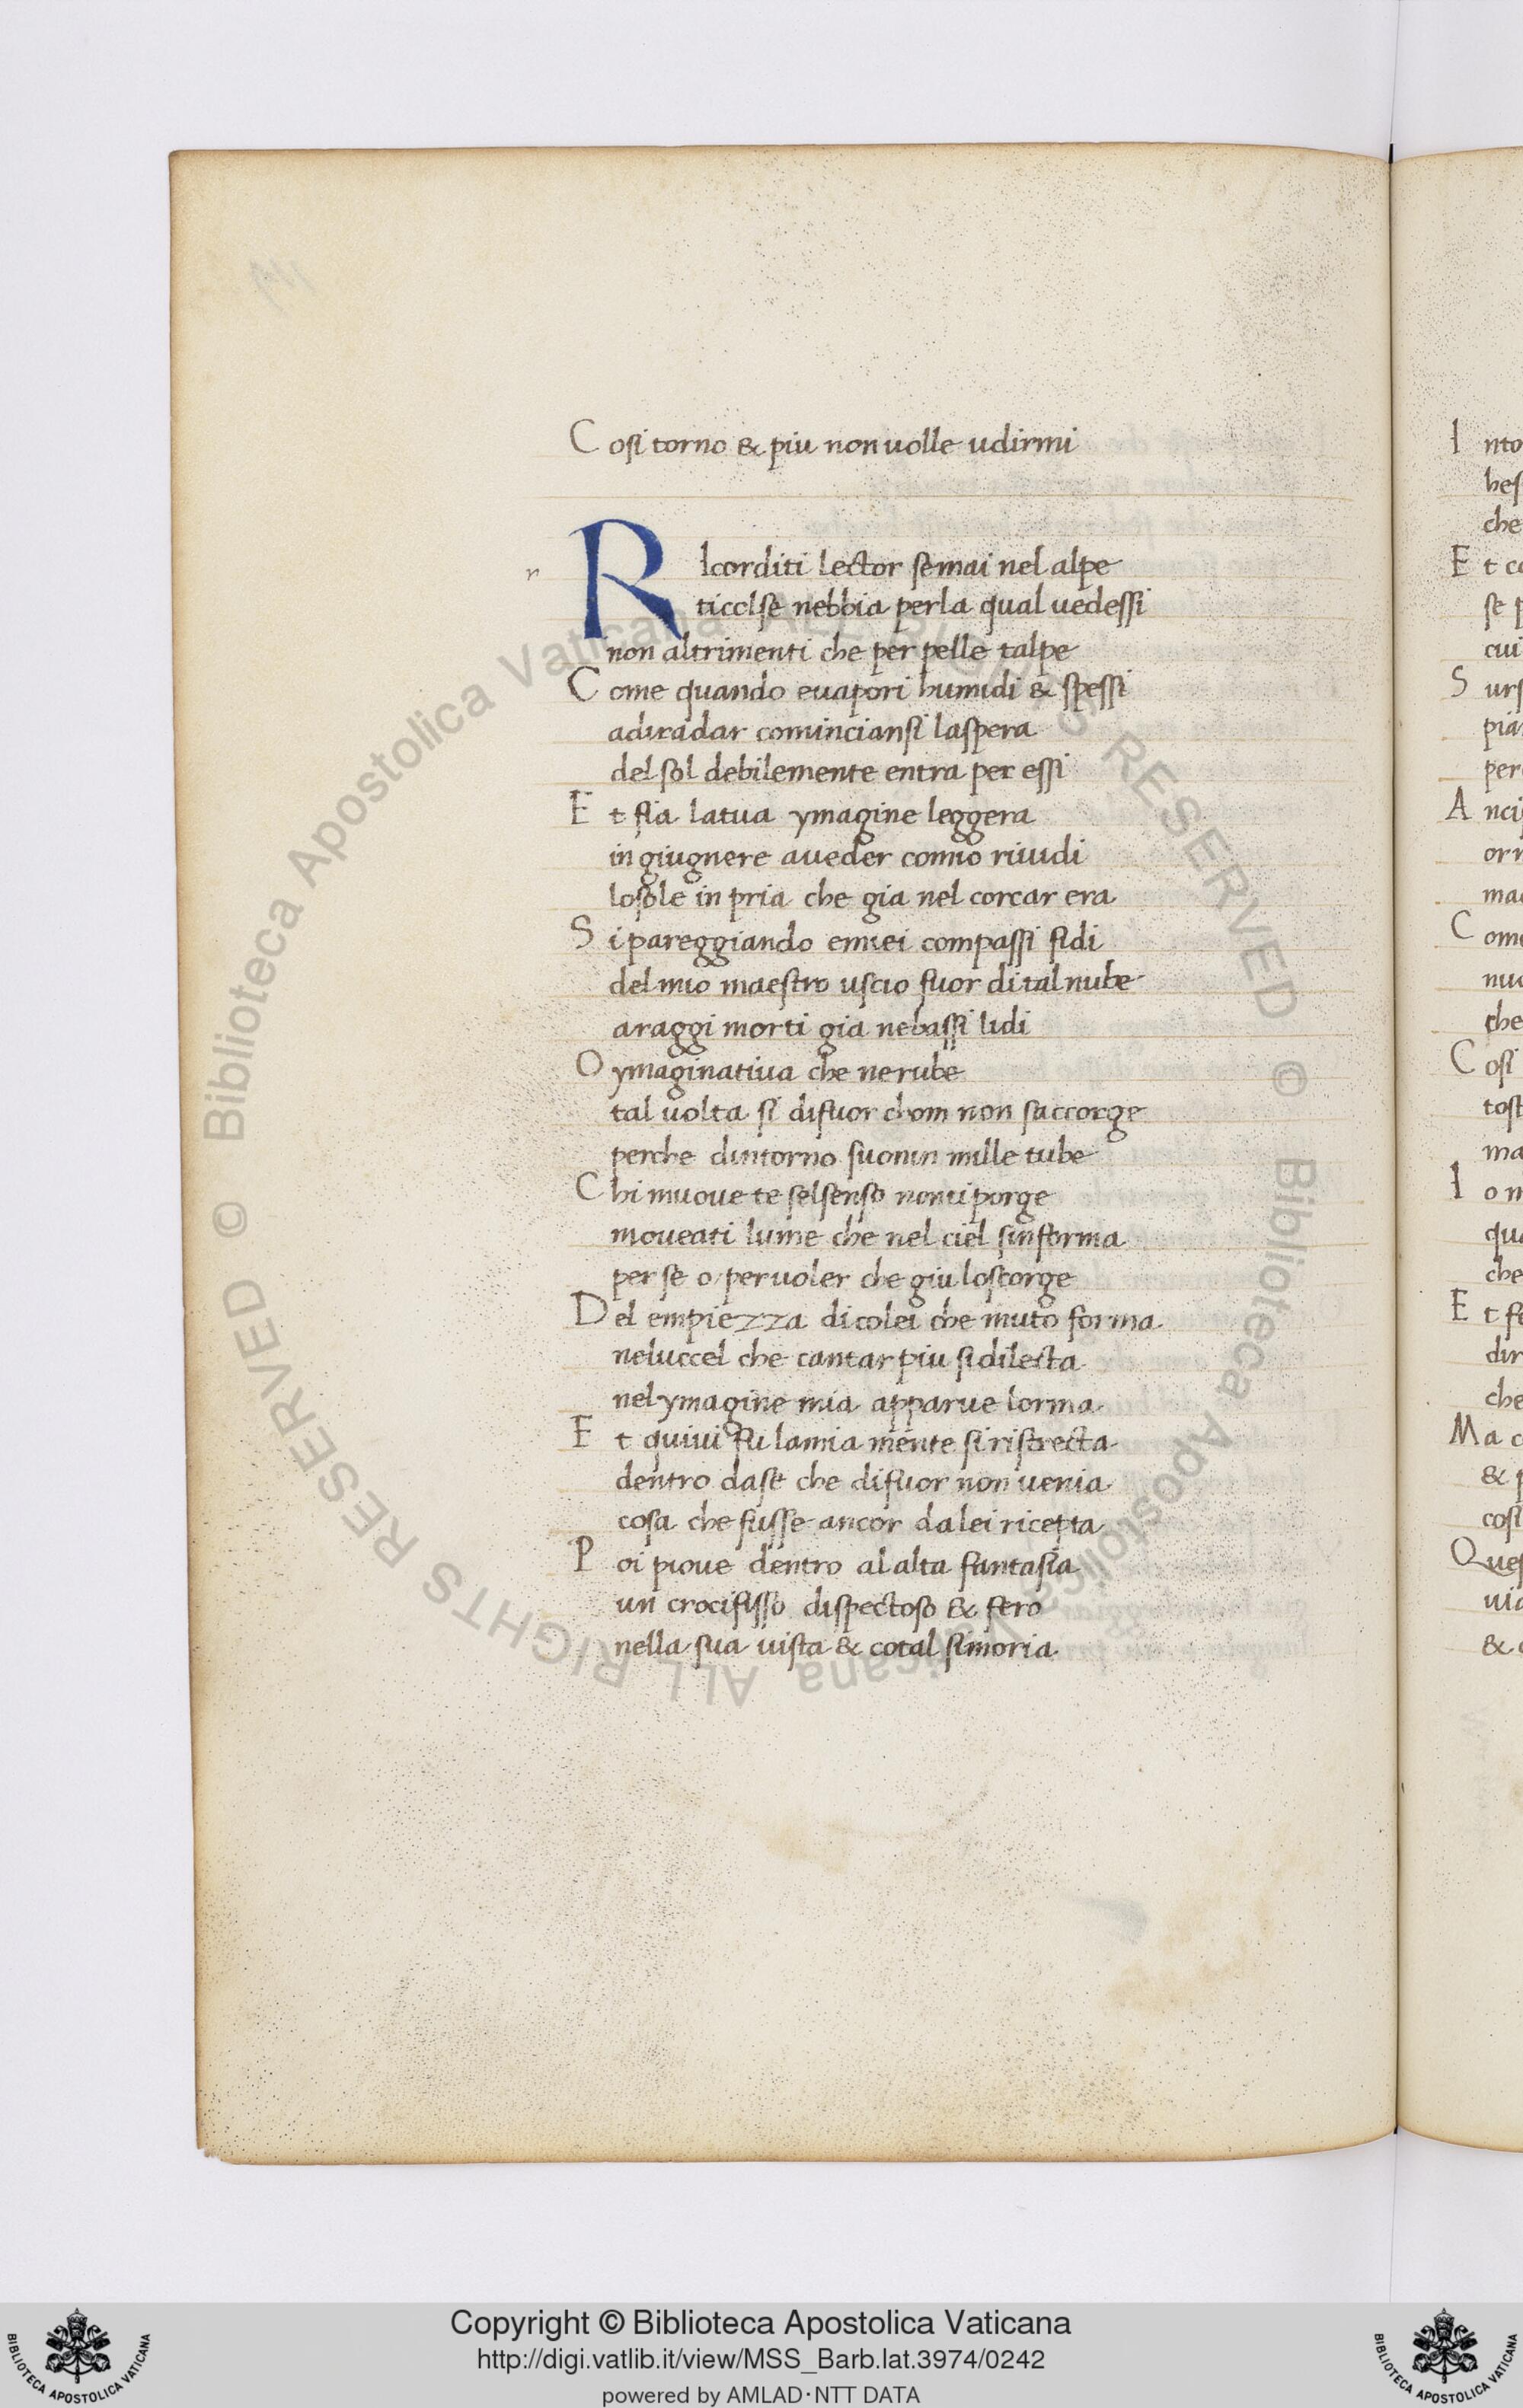 C osi torno & piu non uolle udirmi
r
R Icorditi lector se mai nel alpe
ticolse nebbia perla qual uedessi
non altrimenti che per pelle talpe
C ome quando euapori humidi & spessi
adiradar comincians̄i laspera
del sol debilemente entra per essi
E t fia latua ymagine leggera
in giugnere aueder comio riuudi
losole in pria che gia nel corcar era
S i pareggiando emiei compassi fidi
del mio maestro uscio fuor di tal nube
araggi morti gia nebassi lidi
O ymaginatiua che nerube
tal uolta si difuor chom non saccorge
perche dintorno suonin mille tube
C hi muoue te selsenso nonti porge
moueati lume che nel ciel sinforma
per se o per uoler che giu loscorge
D el empiezza di colei che muto forma
neluccel che cantar piu si dilecta
nel ymagine mia apparue lorma
E t quiui fu lamia mente si ristrecta
dentro dase che difuor non uenia
cosa che fusse ancor da lei ricepta
P oi pioue dentro al alta fantasia
un crocifisso dispectoso & fero
nella sua uista & cotal simoria
I nto
hes
che
E t co
se p
cui
S urs
pia
per
A nci
orn
ma
C ome
nu
che
C osi
tost
ma
I o m
qua
che
E t fe
dir
che
M a c
& p
cosi
Ques
uia
& c
© Biblioteca Apostolica Vaticana ALL RIGHTS RESERVED © Biblioteca Apostolica Vaticana ALL RIGHTS RESERVED
Copyright © Biblioteca Apostolica Vaticana
http://digi.vatlib.it/view/MSS_Barb.lat.3974/0242
powered by AMLAD·NTT DATA
BIBLIOTECA APOSTOLICA VATICANA
BIBLIOTECA APOSTOLICA VATICANA